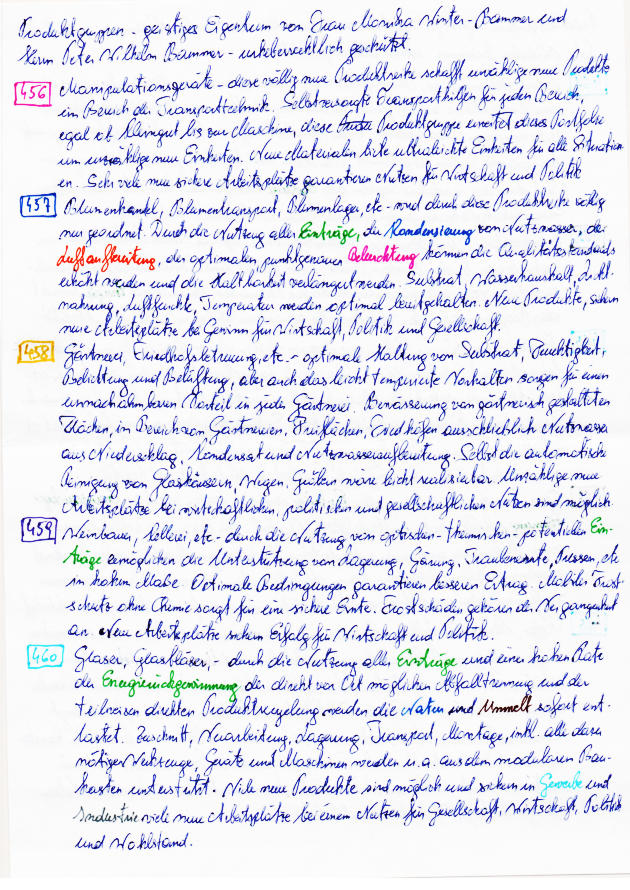 Produktgruppen - geistiges Eigentum von Frau Monika Winter-Bammer und
Herrn Peter Wilhelm Bammer - urheberrechtlich geschützt.
456 Manipulationsgeräte - diese völlig neue Produktreihe schafft unzählige neue Produkte
im Bereich der Transporttechnik. Selbstversorgte Transporthilfen für jeden Bereich,
egal ob Kleingut bis zur Maschine, diese Produktgruppe erweitert dieses Portfolio
um unzählige neue Einheiten. Neue Materialien bieten ultraleichte Einheiten für alle Situation-
en. Sehr viele neue sichere Arbeitsplätze garantieren Nutzen für Wirtschaft und Politik
457 Blumenhandel, Blumentransport, Blumenlager, etc - wird durch diese Produktreihe völlig
neu geordnet. Durch die Nutzung aller Einträge, der Kondensierung von Nutzwasser, der
Luftaufbereitung, der optimalen punktgenauen Beleuchtung können die Qualitätsstandards
erhöht werden und die Haltbarkeit verlängert werden. Substrat, Wasserhaushalt,
nahrung, Luftfeuchte, Temperatur werden optimal bereitgehalten. Neue Produkte, sichern
neue Arbeitsplätze bei Gewinn für Wirtschaft, Politik und Gesellschaft.
458 Gärtnerei, Friedhofsbetreuung, etc. - optimale Haltung von Substrat, Feuchtigkeit,
Belichtung und Belüftung, aber auch das leicht temperierte Vorhalten sorgen für einen
unnachahmbaren Vorteil in jeder Gärtnerei. Bewässerung von gärtnerisch gestalteten
Flächen, im Bereich von Gärtnereien, Grünflächen, Friedhöfen ausschließlich Nutzwasser
aus Niederschlag, Kondensat und Nutzwasseraufbereitung. Selbst die automatische
Reinigung von Glashäusern, Wegen, Gräbern wäre leicht realisierbar. Unzählige neue
Arbeitsplätze bei wirtschaftlichem, politischen und gesellschaftlichen Nutzen sind möglich
459 Weinbauer, Kellerei, etc - durch die Nutzung von optischen - thermischen - potentiellen Ein-
träge ermöglichen die Unterstützung von Lagerung, Gärung, Traubenernte, Pressen, etc
in hohem Maße. Optimale Bedingungen garantieren besseren Ertrag. Mobiler Frost-
schutz ohne Chemie sorgt für eine sichere Ernte. Frostschäden gehören der Vergangenheit
an. Neue Arbeitsplätze sichern Erfolg für Wirtschaft und Politik.
460 Glaser, Glasbläser, - durch die Nutzung aller Einträge und einer hohen Rate
der Energierückgewinnung der direkt vor Ort möglichen Abfalltrennung und der
teilweisen direkten Produktrecycelung werden die Natur und Umwelt sofort ent-
lastet. Zuschnitt, Verarbeitung, Lagerung, Transport, Montage, inkl. aller dazu
nötigen Werkzeuge, Geräte und Maschinen werden u. a. aus dem modularen Bau-
kasten unterstützt. Viele neue Produkte sind möglich und sichern in Gewerbe und
Industrie viele neue Arbeitsplätze bei einem Nutzen für Gesellschaft, Wirtschaft, Politik
und Wohlstand.